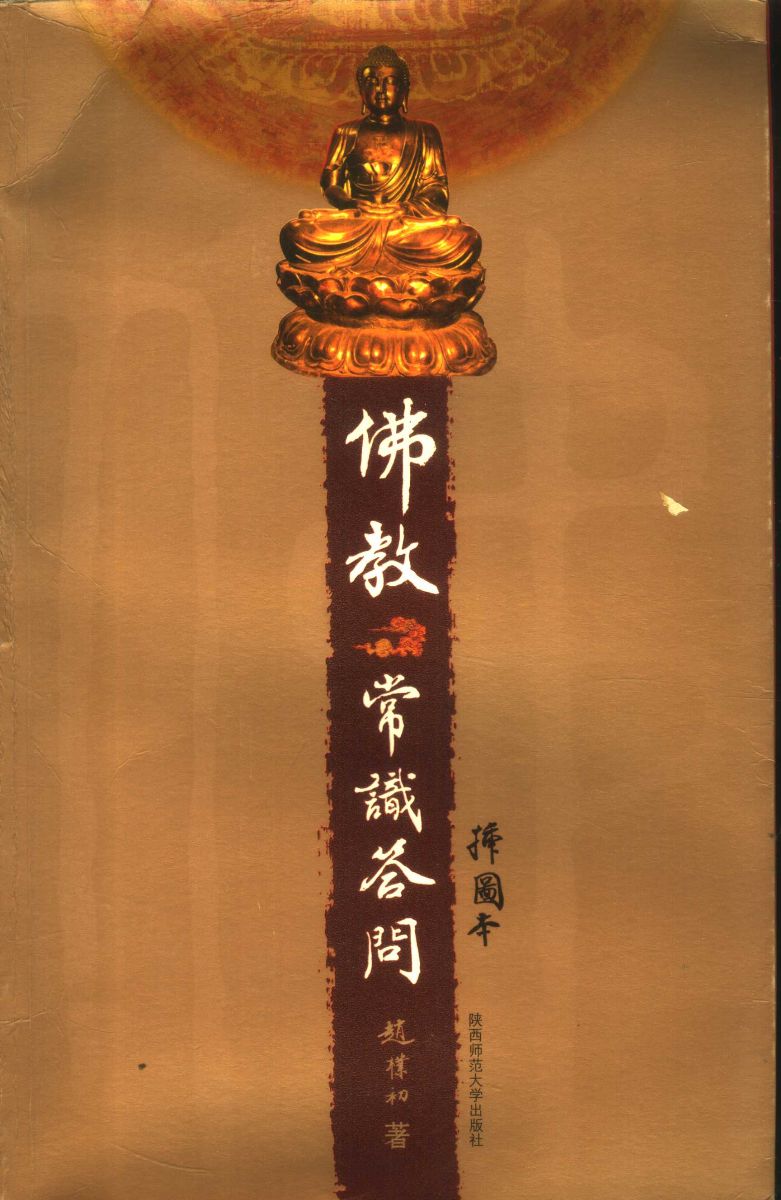 佛教
常識答問
趙樸初 著
插圖本
陕西师范大学出版社